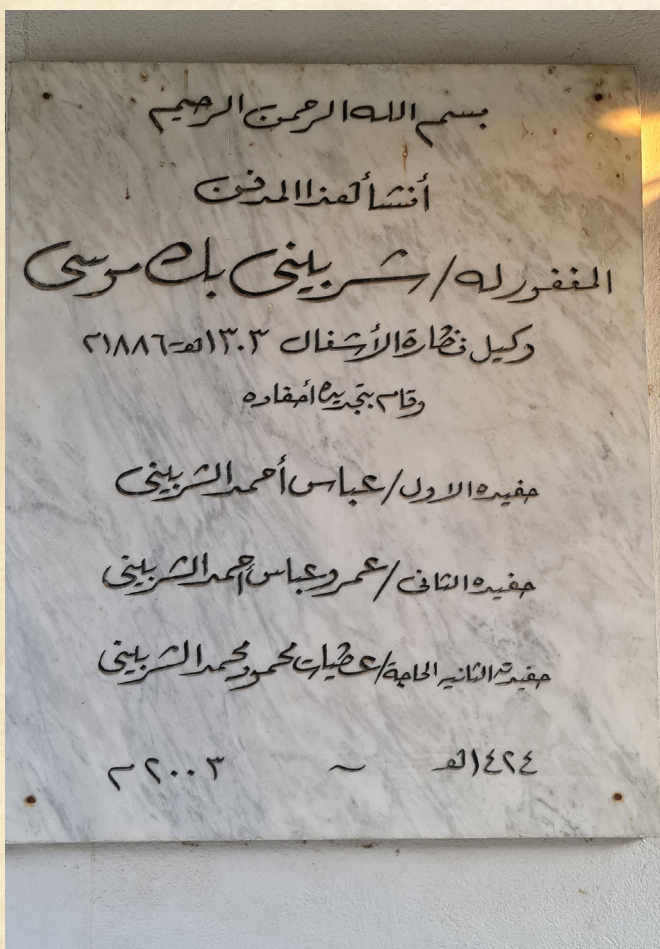 بسم الله الرحمن الرحيم
أنشأ هذا المدفن
المغفور له / شربينى بك موسى
وكيل نظارة الأشغال ١٣٠٣هـ-١٨٨٦م
وقام بتجديده أحفاده
حفيده الاول / عباس أحمد الشربينى
حفيده الثانى / عمرو عباس أحمد الشربينى
حفيدته الثانيه الحاجة / عطيات محمود محمد الشربينى
١٤٢٤هـ ~ ٢٠٠٣م